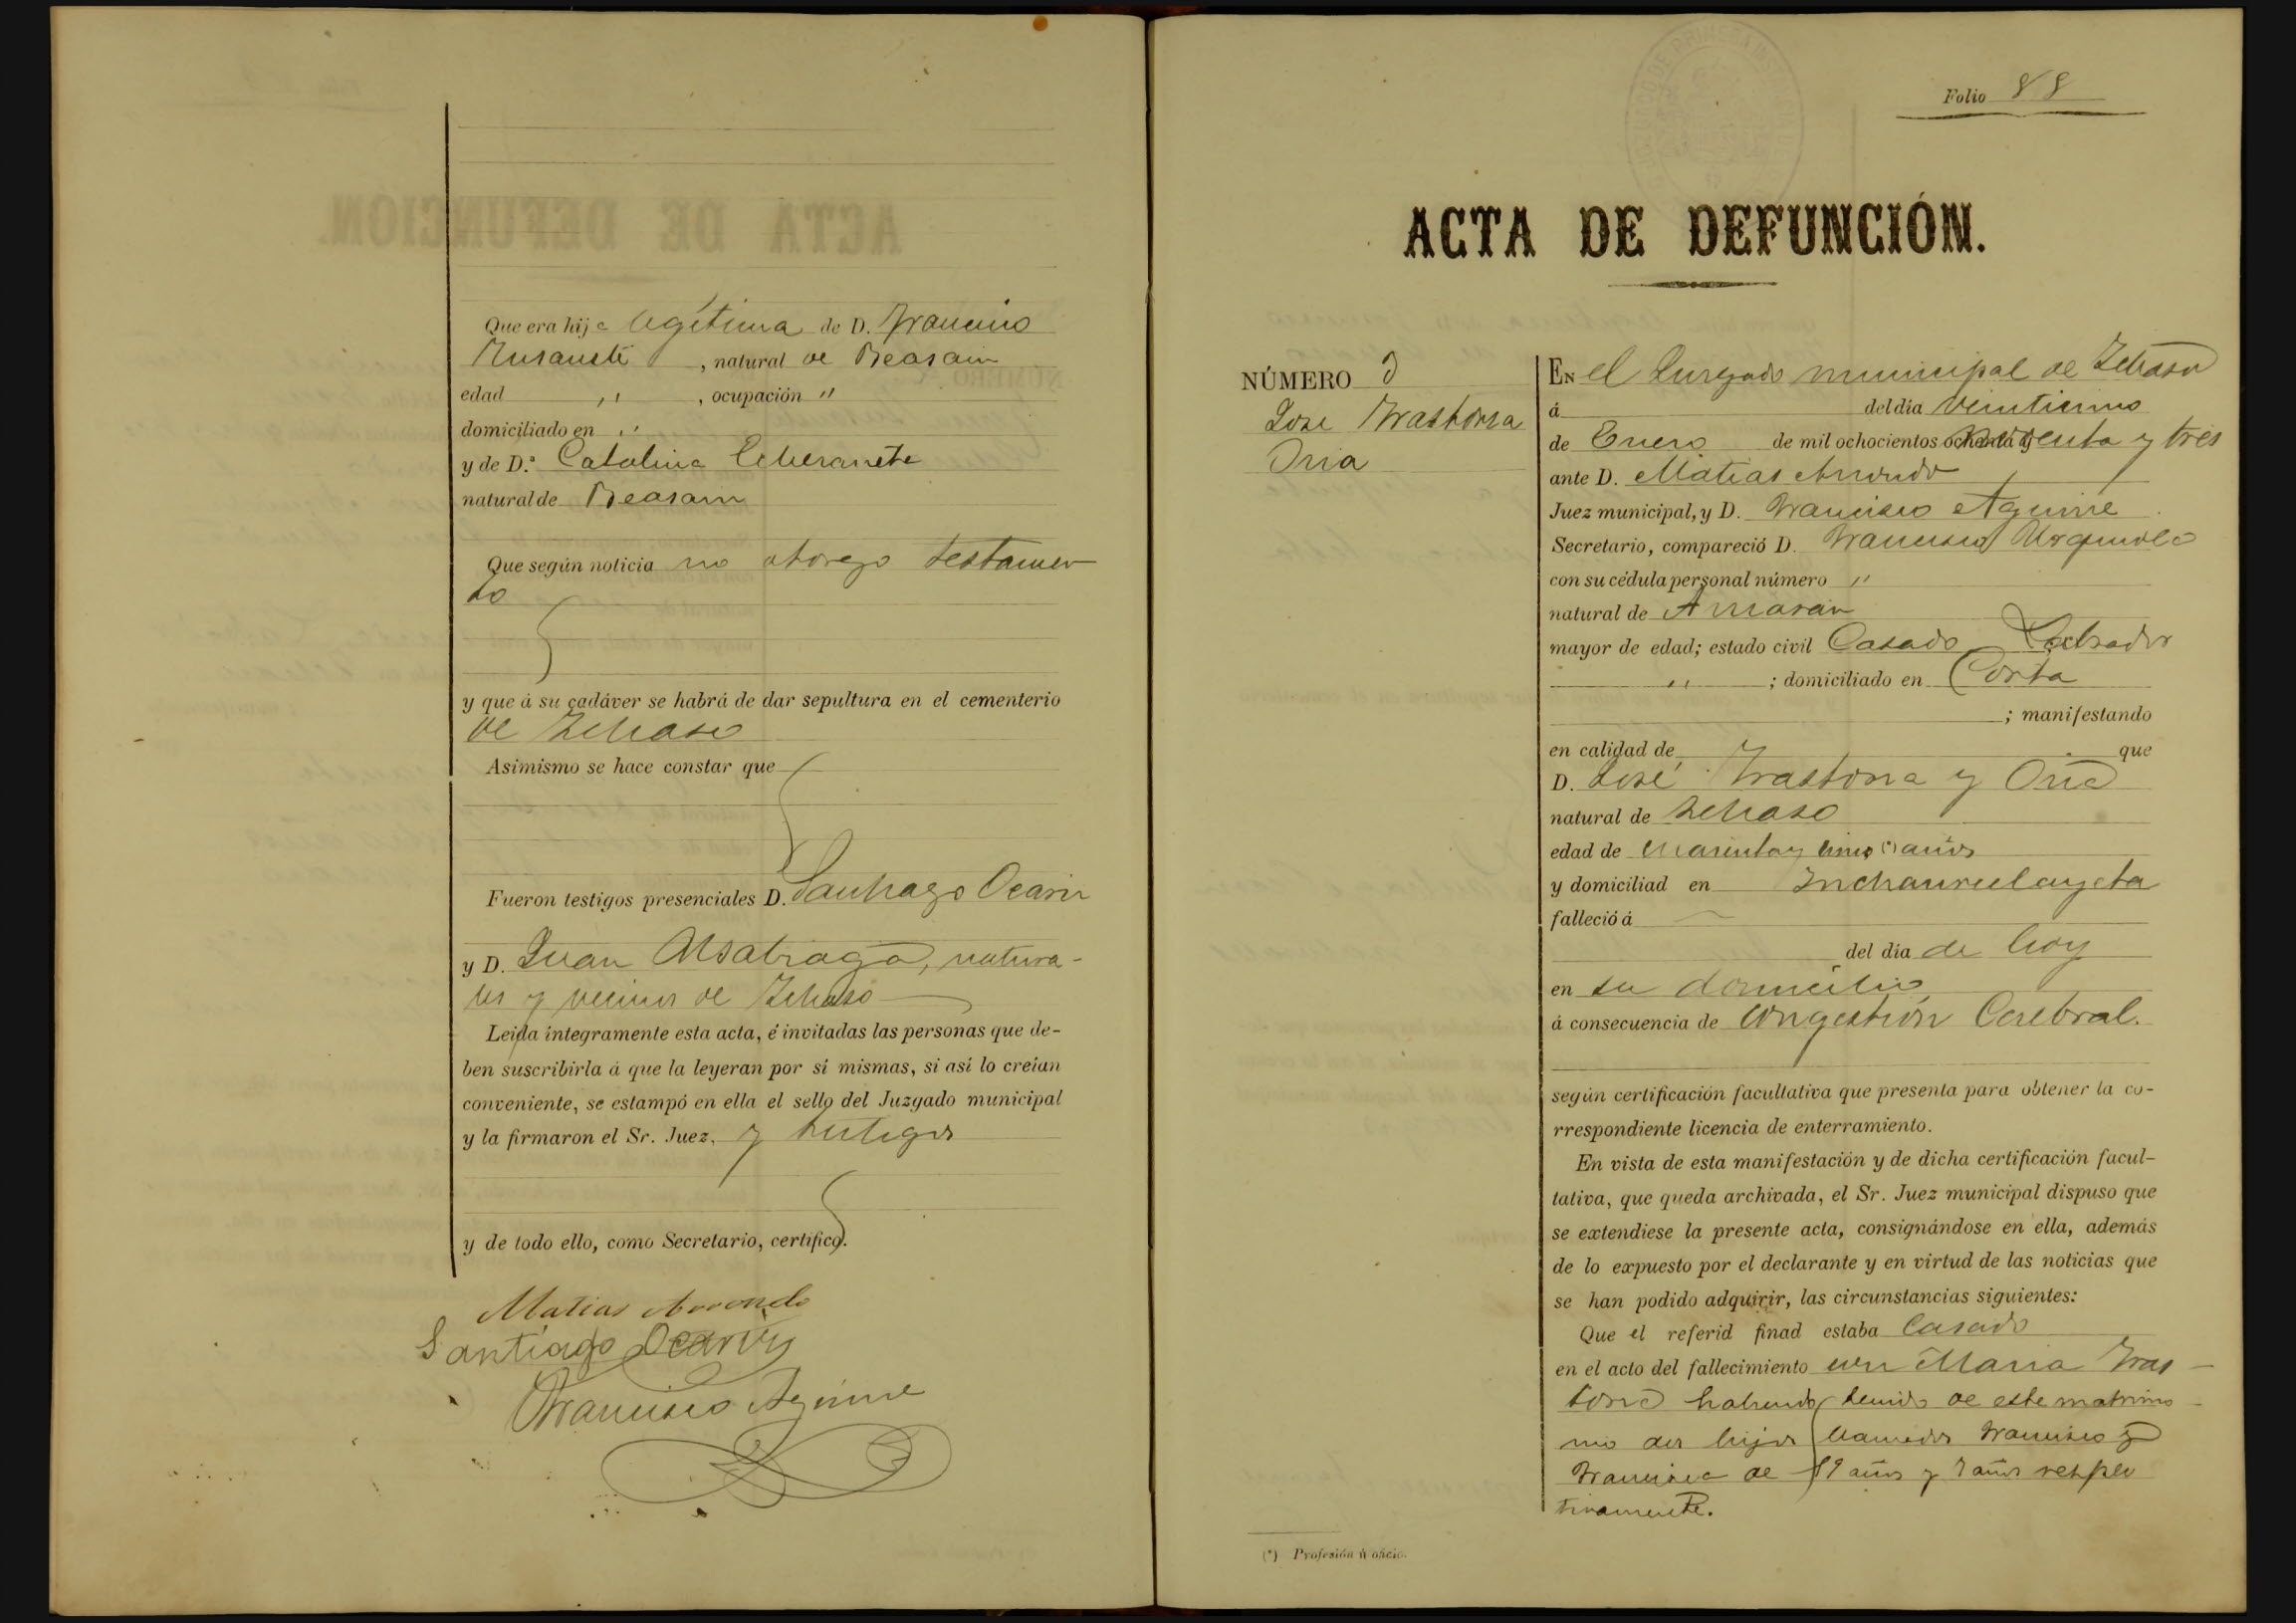 Que era hija legítima de D. Francisco
, natural de Beasain
edad " , ocupación "
domiciliado en "
y de D.ª Catalina Echezarreta
natural de Beasain
Que según noticia no otorgo testamen
to
y que á su cadáver se habrá de dar sepultura en el cementerio
de Ichaso
Asimismo se hace constar que
Fueron testigos presenciales D. Santiago Ocariz
y D. Juan Alsatraga, natura-
les y vecinos de Ichaso
Leida íntegramente esta acta, é invitadas las personas que de-
ben suscribirla á que la leyeran por sí mismas, si así lo creían
conveniente, se estampó en ella el sello del Juzgado municipal
y la firmaron el Sr. Juez, y testigos
y de todo ello, como Secretario, certifico.
Matias Arrondo
Santiago Ocariz
Francisco Aguirre
Folio 88
ACTA DE DEFUNCIÓN.
NÚMERO 3
Jose Irastorza
Oria
EN el Juzgado municipal de Ichaso
á del dia veinticinco
de Enero de mil ochocientos ochenta y noventa y tres
ante D. Matias Arrondo
Juez municipal, y D. Francisco Aguirre
Secretario, compareció D. Francisco Urquiola
con su cédula personal número "
natural de
mayor de edad; estado civil Casado Labrador
" ; domiciliado en Corta
; manifestando
en calidad de que
D. José Irastorza y Oria
natural de Ichaso
edad de cuarenta y cinco (*) años
y domiciliad en Inchaurrelaygta
falleció á
del dia de hoy
en su domicilio
á consecuencia de congestión Cerebral.
según certificación facultativa que presenta para obtener la co-
rrespondiente licencia de enterramiento.
En vista de esta manifestación y de dicha certificación facul-
tativa, que queda archivada, el Sr. Juez municipal dispuso que
se extendiese la presente acta, consignándose en ella, además
de lo expuesto por el declarante y en virtud de las noticias que
se han podido adquirir, las circunstancias siguientes:
Que el referid finad estaba Casado
en el acto del fallecimiento con Maria Iras-
torza habiendo tenido de este matrimo-
nio dos hijos llamados Francisco y
Francisca de años y 7 años respec
tivamente.
(*) Profesión ú oficio.